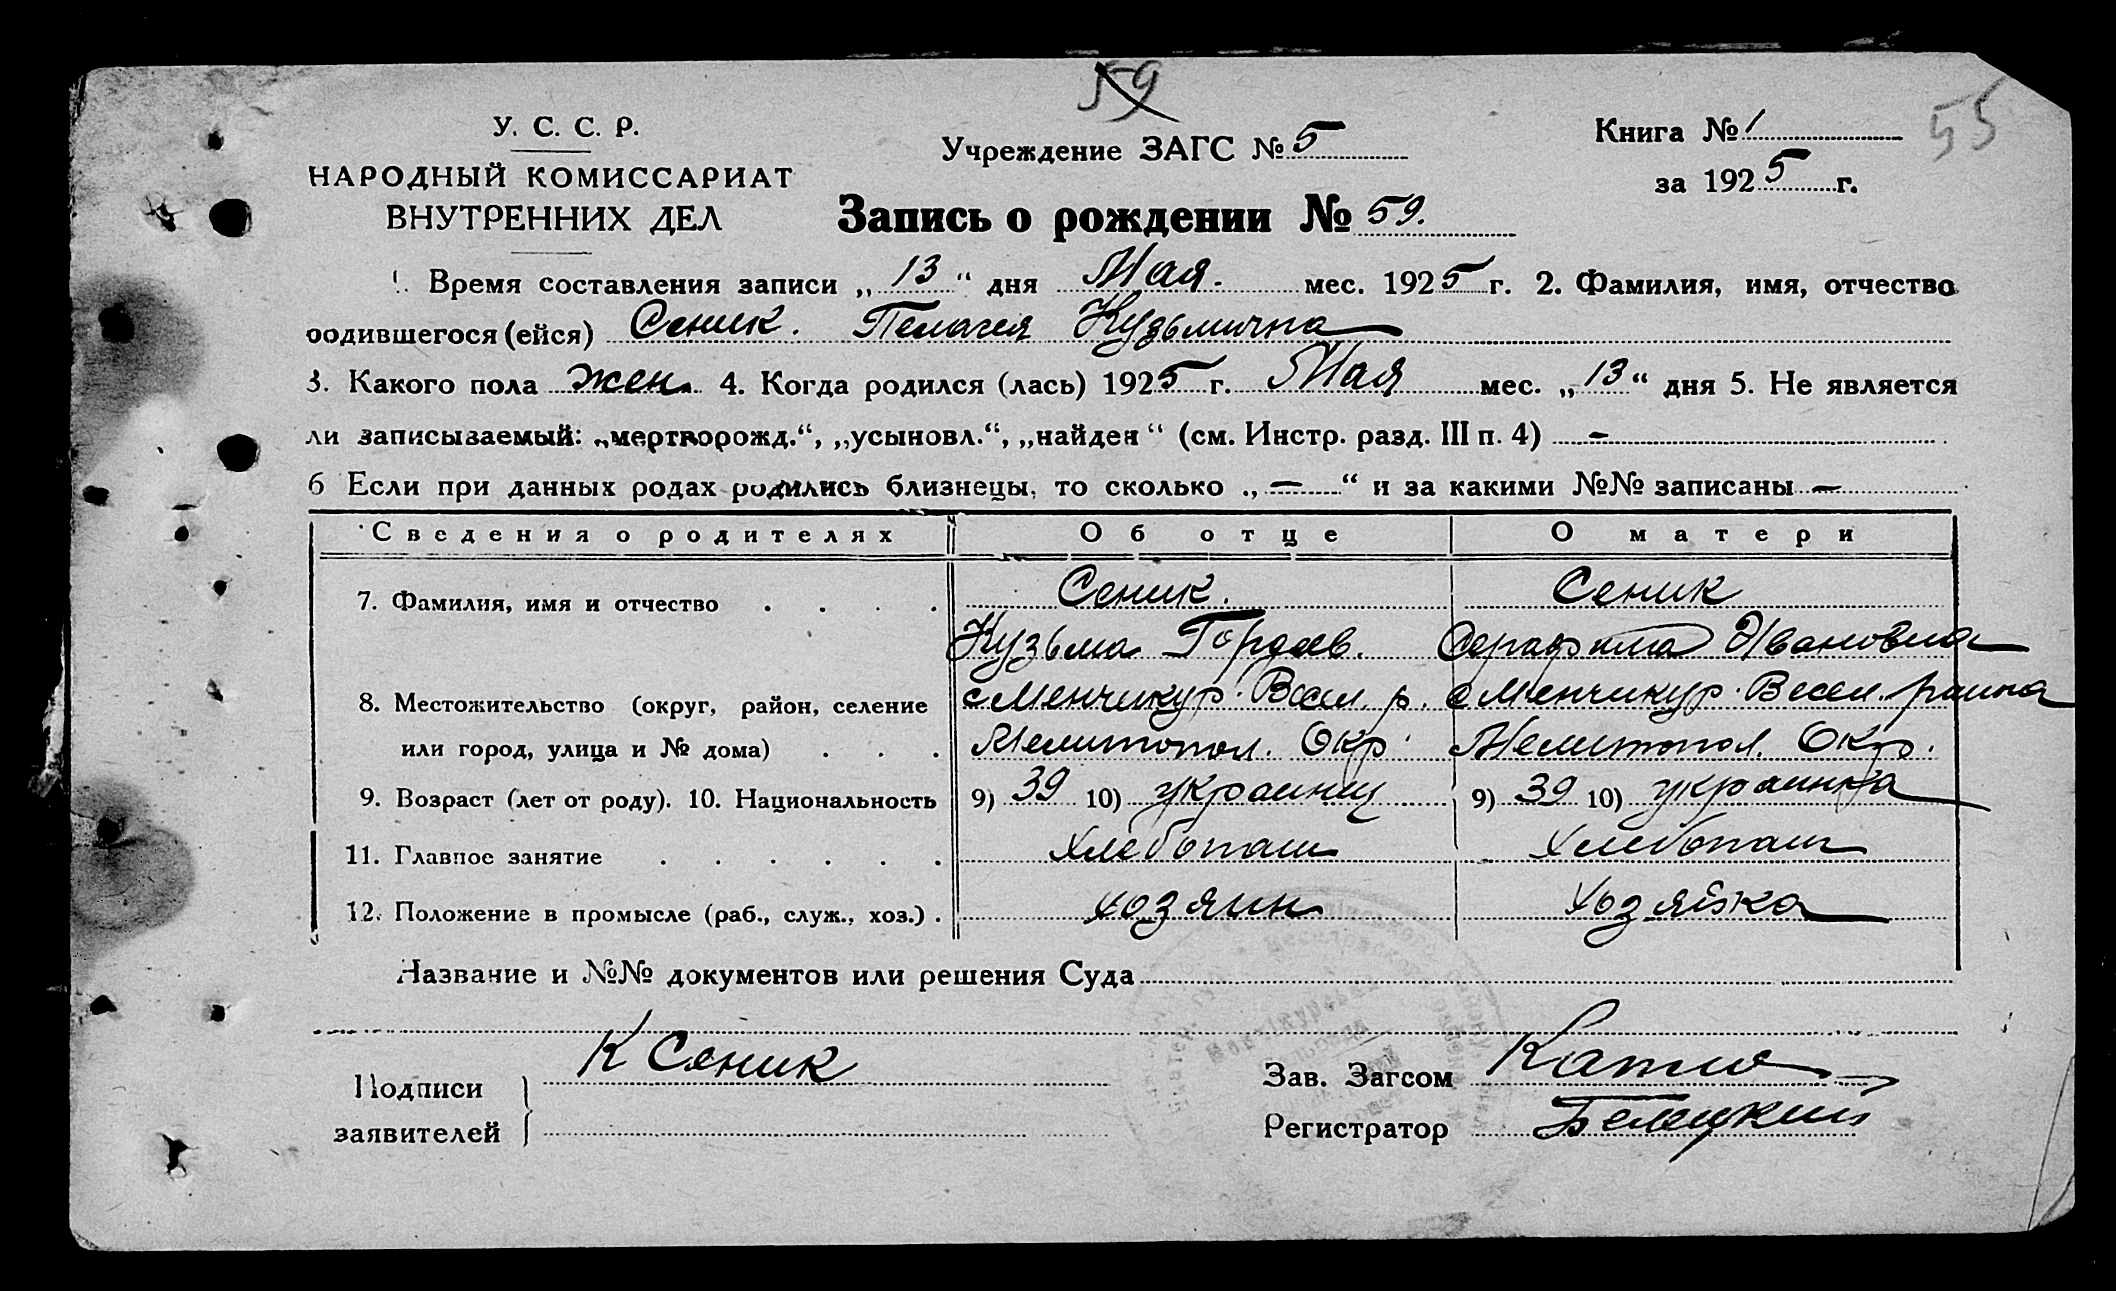 59
55
У. С. С. Р.
НАРОДНЫЙ КОМИССАРИАТ
ВНУТРЕННИХ ДЕЛ
Учреждение ЗАГС № 5
Книга № 1
за 1925 г.
Запись о рождении № 59.
1. Время составления записи „ 13 “ дня Мая. мес. 1925 г. 2. Фамилия, имя, отчество
родившегося (ейся) Сеник. Пелагея Кузьмична
3. Какого пола жен. 4. Когда родился (лась) 1925 г. Мая мес. „ 13 “ дня 5. Не является
ли записываемый: „мертворожд.“, „усыновл.“, „найден“ (см. Инстр. разд. III п. 4) —
6 Если при данных родах родились близнецы, то сколько „ — “ и за какими №№ записаны —
Сведения о родителях Об отце О матери
7. Фамилия, имя и отчество . . . . Сеник. Сеник
Кузьма Гордеев. Серафима Ивановна
8. Местожительство (округ, район, селение с Менчикур. Весел. р. с Менчикур. Весел. раина
или город, улица и № дома) . . . Мелитопол. Окр. Мелитопол. Окр.
9. Возраст (лет от роду). 10. Национальность 9) 39 10) украинц 9) 39 10) украинка
11. Главное занятие . . . . . . Хлебопаш Хлебопаш
12. Положение в промысле (раб., служ., хоз.) . хозяин хозяйка
Название и №№ документов или решения Суда
Подписи
заявителей
К Сеник
Зав. Загсом
Регистратор Белецкий